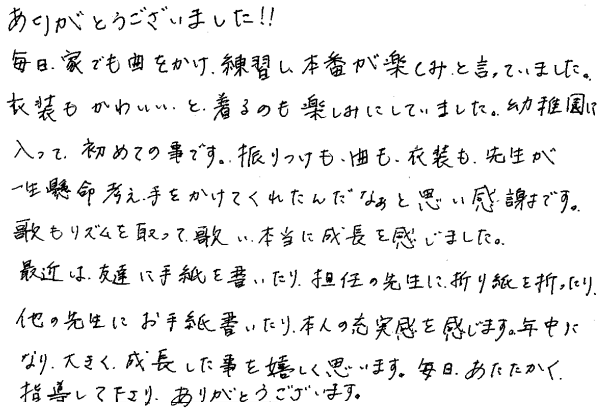 ありがとうございました!!
毎日、家でも曲をかけ、練習し、本番が楽しみと言っていました。
衣装もかわいい、と、着るのも楽しみにしていました。幼稚園に
入って、初めての事です。振りつけも、曲も、衣装も、先生が
一生懸命考え、手をかけてくれたんだなぁと思い感謝です。
歌もリズムを取って、歌い、本当に成長を感じました。
最近は、友達に手紙を書いたり、担任の先生に、折り紙を折ったり、
他の先生にお手紙書いたり、本人の充実感を感じます。年中に
なり、大きく、成長した事を嬉しく思います。毎日、あたたかく、
指導して下さり、ありがとうございます。